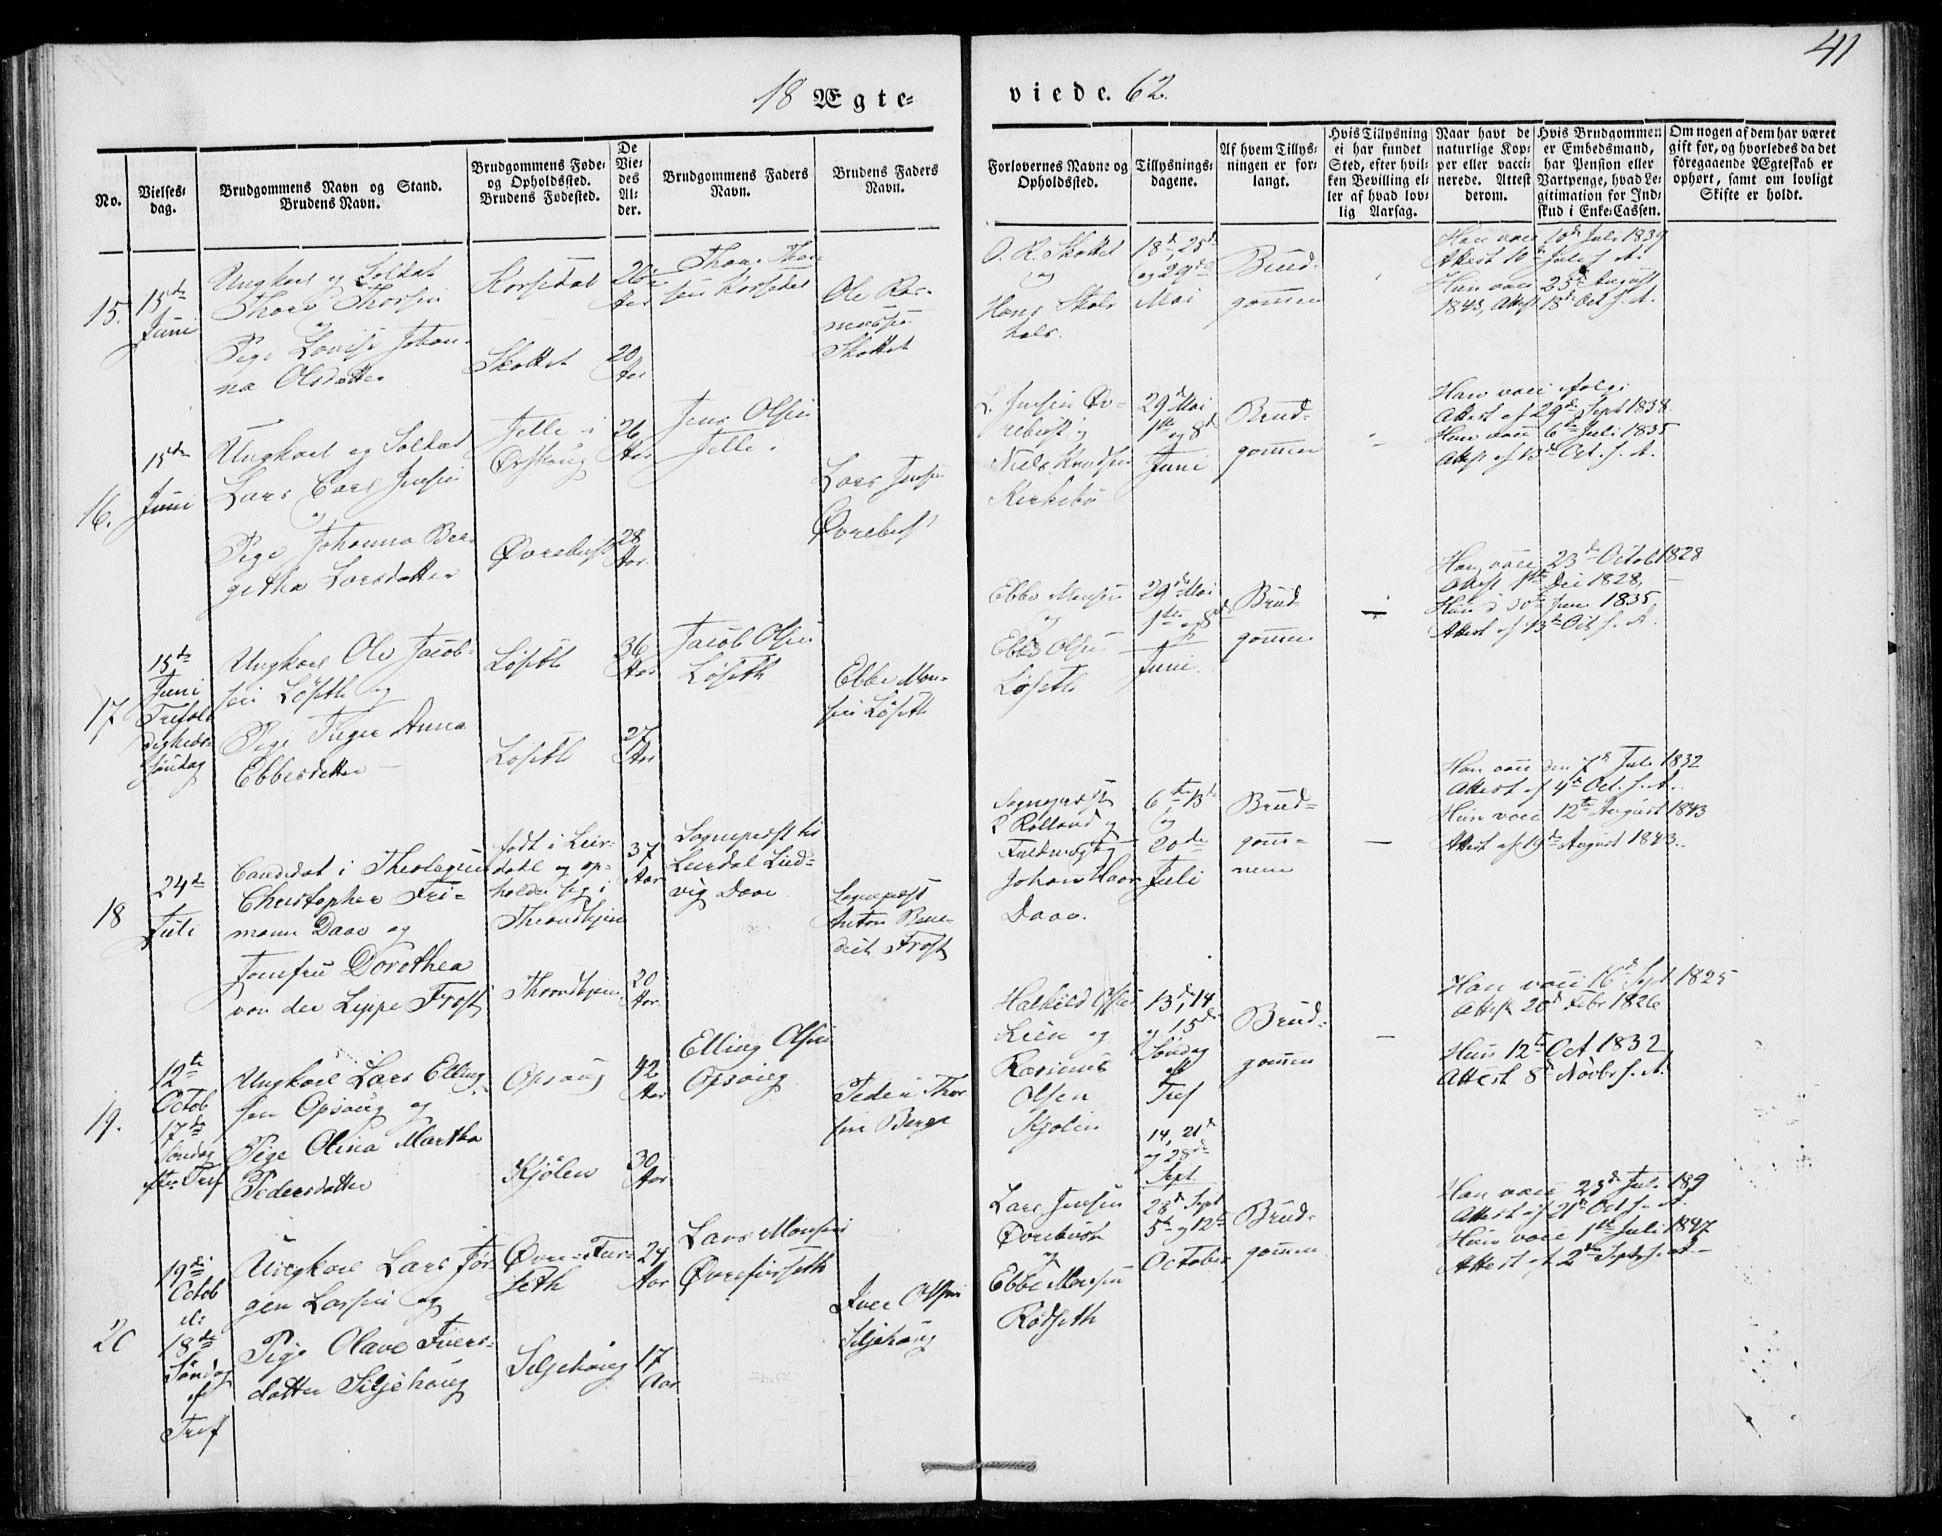 41
18 Ægte-
viede. 62.
No.
Vielses-
dag.
Brudgommens Navn og Stand.
Brudens Navn.
Brudgommens Føde-
og Opholdssted.
Brudens Fødested.
De
Vie-
des
Al-
der.
Brudgommens Faders
Navn.
Brudens Faders
Navn.
Forlovernes Navne og
Opholdssted.
Tillysnings-
dagene.
Af hvem Tillys-
ningen er for-
langt.
Hvis Tillysning
ei har fundet
Sted, efter hvil-
ken Bevilling el-
ler af hvad lov-
lig Aarsag.
Naar havt de
naturlige Kop-
per eller vacci-
nerede. Attest
derom.
Hvis Brudgommen
er Embedsmand,
har Pension eller
Vartpenge, hvad Le-
gitimation for Ind-
skud i Enke-Cassen.
Om nogen af dem har været
gift før, og hvorledes da det
foregaaende Ægteskab er
ophørt, samt om lovligt
Skifte er holdt.
15.
15de
Juni
Ungkarl og Soldat
Thore Thorsen
og
Pige Lovise Johan-
na Olsdatter
Korsedal
Skottet
26
Aar
20
Aar
Thore Thor-
sen Korsedal
Ole Ras-
mussen
Skottet
O. R. Skottet
og
Hans
18de, 25de
og 29de
Mai
Brud-
gommen
Han vacc 10de Juli 1839
Attest 10de Juli s. A.
Hun vacc 25de August
1843, Attest 18de Oct. s. A.
16.
15de
Juni
Ungkarl og Soldat
Lars Carl Jensen
og
Pige Johanna Ber-
githa Larsdatter
Jelle i
Ørskoug
Øvrebust
26
Aar
28
Aar
Jens Olsen
Jelle
Lars Jensen
Øvrebust
L. Jensen Øv-
rebust og
Niels Knudsen
Kirkebø
29de Mai
1ste og 8de
Juni
Brud-
gommen
Han vacc
Attest af 29de Sept 1838
Hun vacc 6te Juli 1835
Attest af 13de Oct. s. A.
17
15de
Juni
Trefol-
digheds-
søndag
Ungkarl Ole Jacob-
sen Løseth og
Pige Inger Anna
Ebbesdatter
Løseth
Løseth
36
Aar
27
Aar
Jacob Olsen
Løseth
Ebbe Mon-
sen Løseth
Ebbe Monsen
og
Ebbe Olsen
Løseth
29de Mai
1ste og 8de
Juni
Brud-
gommen
Han vacc 23de Octob 1828
Attest 1ste Dec 1828,
Hun d 30te Juni 1835,
Attest af 13de Oct. s. A.
18
24de
Juli
Candidat i Theologien
Christopher Fri-
mann Daae og
Jomfru Dorothea
von der Lippe Frost
født i Leir-
dahl og op-
holder sig i
Throndhjem
Throndhjem
37
Aar
20
Aar
Sognepræst til
Leirdal Lud-
vig Daae
Sognepræst
Anton Bene-
dict Frost
Sognepræst
Rolland og
Fuldmægtig
Johan
Daae.
6te, 13de
og
20de
Juli
Brud-
gom-
men
Han vacc den 7de Juli 1832
Attest af 4de Oct. s. A.
Hun vacc 12te August 1843
Attest af 19de August 1843.
19.
12te
Octob
17de
Søndag
efter Tref
Ungkarl Lars Elling-
sen Opsoug og
Pige Olina Martha
Pedersdatter
Opsoug
Kjølen
42
Aar
30
Aar
Elling Olsen
Opsoug
Peder Thor-
sen Berge
Halkild Olsen
Lien og
Rasmus
Olsen
Kjølen
13de, 14
og 15de
Søndag
ef
Tref
14, 21de
og 28de
Sept
Brud-
gommen
Han vacc 16de Sept 1825
Attest 20de Febr 1826
Hun 12te Oct 1832
Attest 8de Novbr s. A.
20
19de
Octob
d:
18de
Søndag
ef
Tref
Ungkarl Lars Jør-
gen Larsen og
Pige Olave Ivers-
datter Siljehoug
Øvre-Fur-
seth
Siljehoug
24
Aar
17
Aar
Lars Monsen
Øvrefurseth
Iver Olsen
Siljehoug
Lars Jensen
Øvrebust
og
Ebbe Monsen
Rødseth
28de Sept
5te og 12te
October
Brud-
gommen
Han vacc 23de Juli 189
Attest af 21de Oct s. A.
Hun vacc 1ste Juli 1847
Attest af 2den Sept s. A.